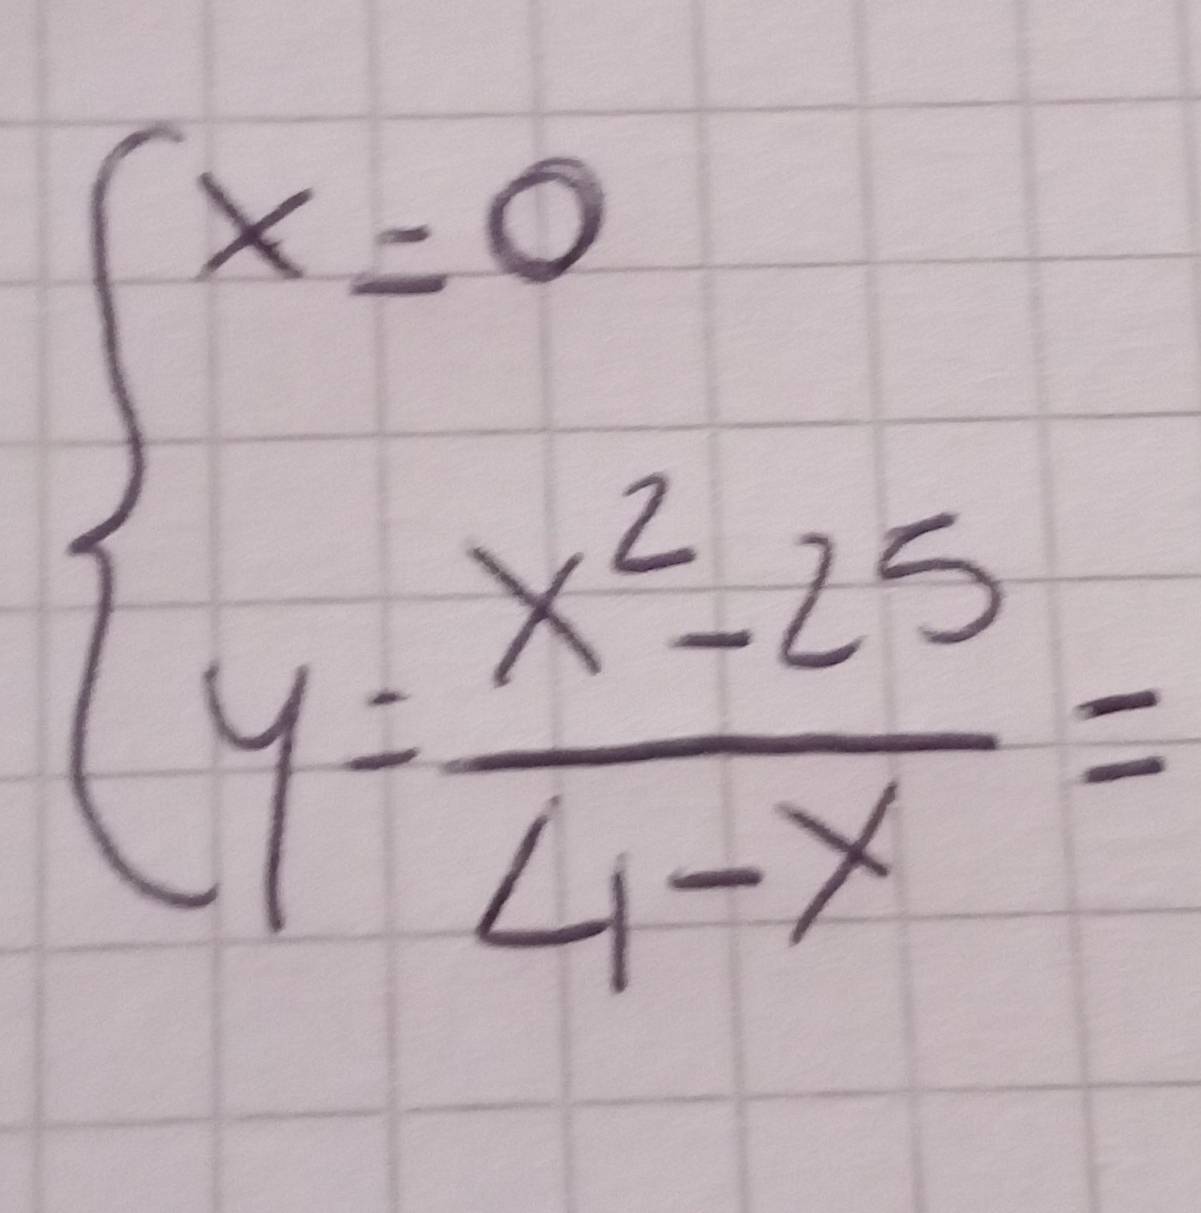 x = 0
y = x² - 25 / 4 - x =